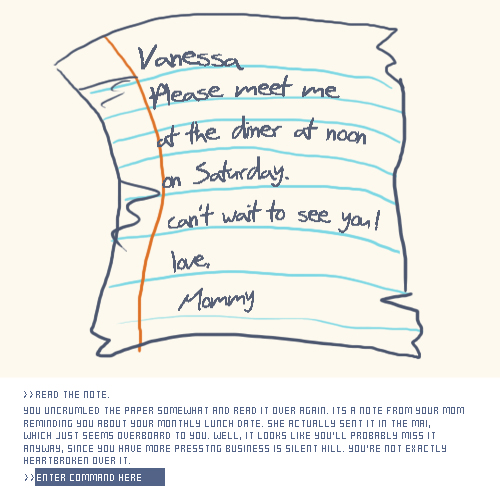 Vanessa
Please meet me
at the diner at noon
on Saturday.
can't wait to see you!
love,
Mommy
>>READ THE NOTE.
YOU UNCRUMLED THE PAPER SOMEWHAT AND READ IT OVER AGAIN. ITS A NOTE FROM YOUR MOM
REMINDING YOU ABOUT YOUR MONTHLY LUNCH DATE. SHE ACTUALLY SENT IT IN THE MAI,
WHICH JUST SEEMS OVERBOARD TO YOU. WELL, IT LOOKS LIKE YOU'LL PROBABLY MISS IT
ANYWAY, SINCE YOU HAVE MORE PRESSTNG BUSINESS IS SILENT HILL. YOU'RE NOT EXACTLY
HEARTBROKEN OVER IT.
>>ENTER COMMAND HERE